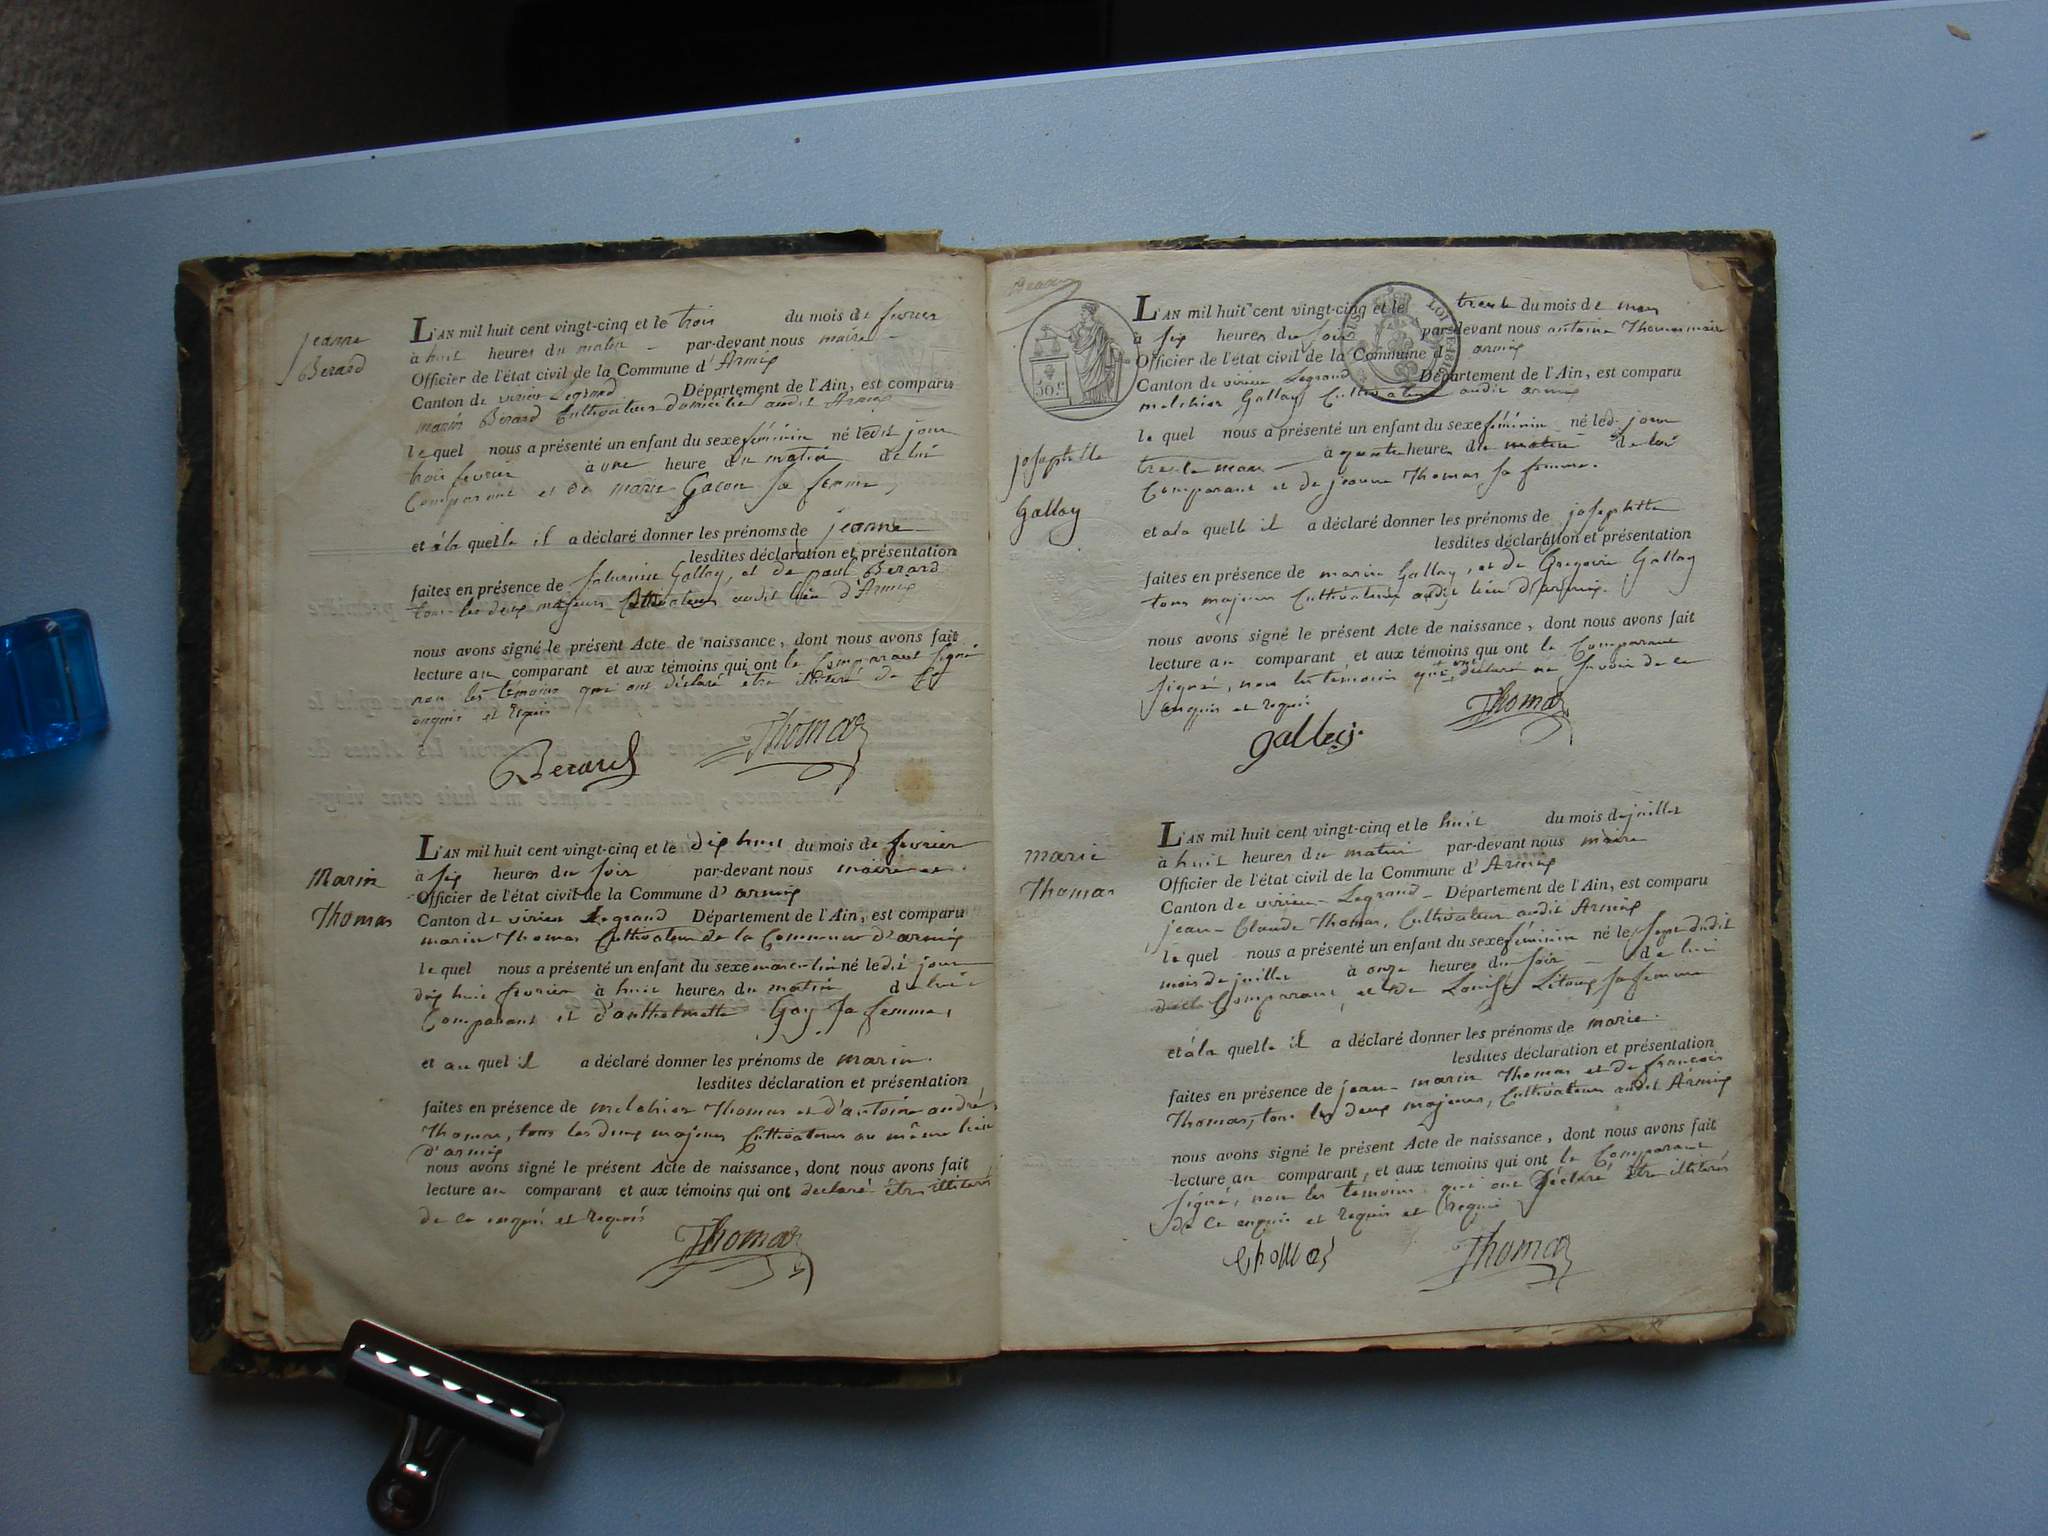 Jeanne
Berard
L'AN mil huit cent vingt-cinq et le trois du mois de fevrier
à huit heures du matin par-devant nous maire
Officier de l'état civil de la Commune d'Armix
Canton de virieu Legrand Département de l'Ain, est comparu
marin Berard Cultivateur domicilié audit Armix
le quel nous a présenté un enfant du sexe féminin né ledit jour
trois fevrier à une heure du matin de lui
Comparant et de marie Gacon sa femme,
et à la quelle il a déclaré donner les prénoms de jeanne
lesdites déclaration et présentation
faites en présence de Gallay, et de paul Berard
tous les deux majeurs Cultivateurs audit lieu d'Armix
nous avons signé le présent Acte de naissance, dont nous avons fait
lecture au comparant et aux témoins qui ont le Comparant signé
non les témoins qui ont déclaré etre illiteré de ce
enquis et requis
Berard Thomas
Marin
Thomas
L'AN mil huit cent vingt-cinq et le dix huit du mois de fevrier
à six heures du soir par-devant nous maire
Officier de l'état civil de la Commune d'armix
Canton de virieu Legrand Département de l'Ain, est comparu
marin Thomas Cultivateur de la Commune d'armix
le quel nous a présenté un enfant du sexe masculin né ledit jour
dix huit fevrier à huit heures du matin de lui
Comparant et d'anthelmette Gay sa femme,
et au quel il a déclaré donner les prénoms de marin.
lesdites déclaration et présentation
faites en présence de melchior Thomas et d'antoine andré
Thomas, tous les deux majeurs Cultivateurs au même lieu
d'armix
nous avons signé le présent Acte de naissance, dont nous avons fait
lecture au comparant et aux témoins qui ont declaré être illiterés
de ce enquis et requis
Thomas
50.c
LOI DE 1816
josephtte
Gallay
L'AN mil huit cent vingt-cinq et le trente du mois de mars
à six heures du soir par-devant nous antoine Thomas maire
Officier de l'état civil de la Commune d'armix
Canton de virieu Legrand Département de l'Ain, est comparu
melchior Gallay Cultivateur audit armix
le quel nous a présenté un enfant du sexe féminin né led. jour
trente mars à quatre heures du matin de lui
Comparant et de jeanne Thomas sa femme.
et à la quelle il a déclaré donner les prénoms de josephtte
lesdites déclaration et présentation
faites en présence de marin Gallay, et de Gregoire Gallay
tous majeurs Cultivateurs audit lieu d'armix.
nous avons signé le présent Acte de naissance, dont nous avons fait
lecture au comparant et aux témoins qui ont le Comparant
signé, non les temoins qui ont déclaré ne savoir de ce
enquis et requis
gallay Thomas
marie
Thomas
L'AN mil huit cent vingt-cinq et le huit du mois de juillet
à huit heures du matin par-devant nous maire
Officier de l'état civil de la Commune d'Armix
Canton de virieu-Legrand Département de l'Ain, est comparu
jean-Claude Thomas, Cultivateur audit Armix
le quel nous a présenté un enfant du sexe féminin né le sept dudit
mois de juillet à onze heures du soir de lui
Comparant, et de Louise sa femme
et à la quelle il a déclaré donner les prénoms de marie.
lesdites déclaration et présentation
faites en présence de jean-marin Thomas et de françois
Thomas, tous les deux majeurs, Cultivateurs audit Armix
nous avons signé le présent Acte de naissance, dont nous avons fait
lecture au comparant, et aux témoins qui ont le Comparant
signé, non les temoins qui ont déclaré être illiterés
de ce enquis et requis et requis
thomas Thomas